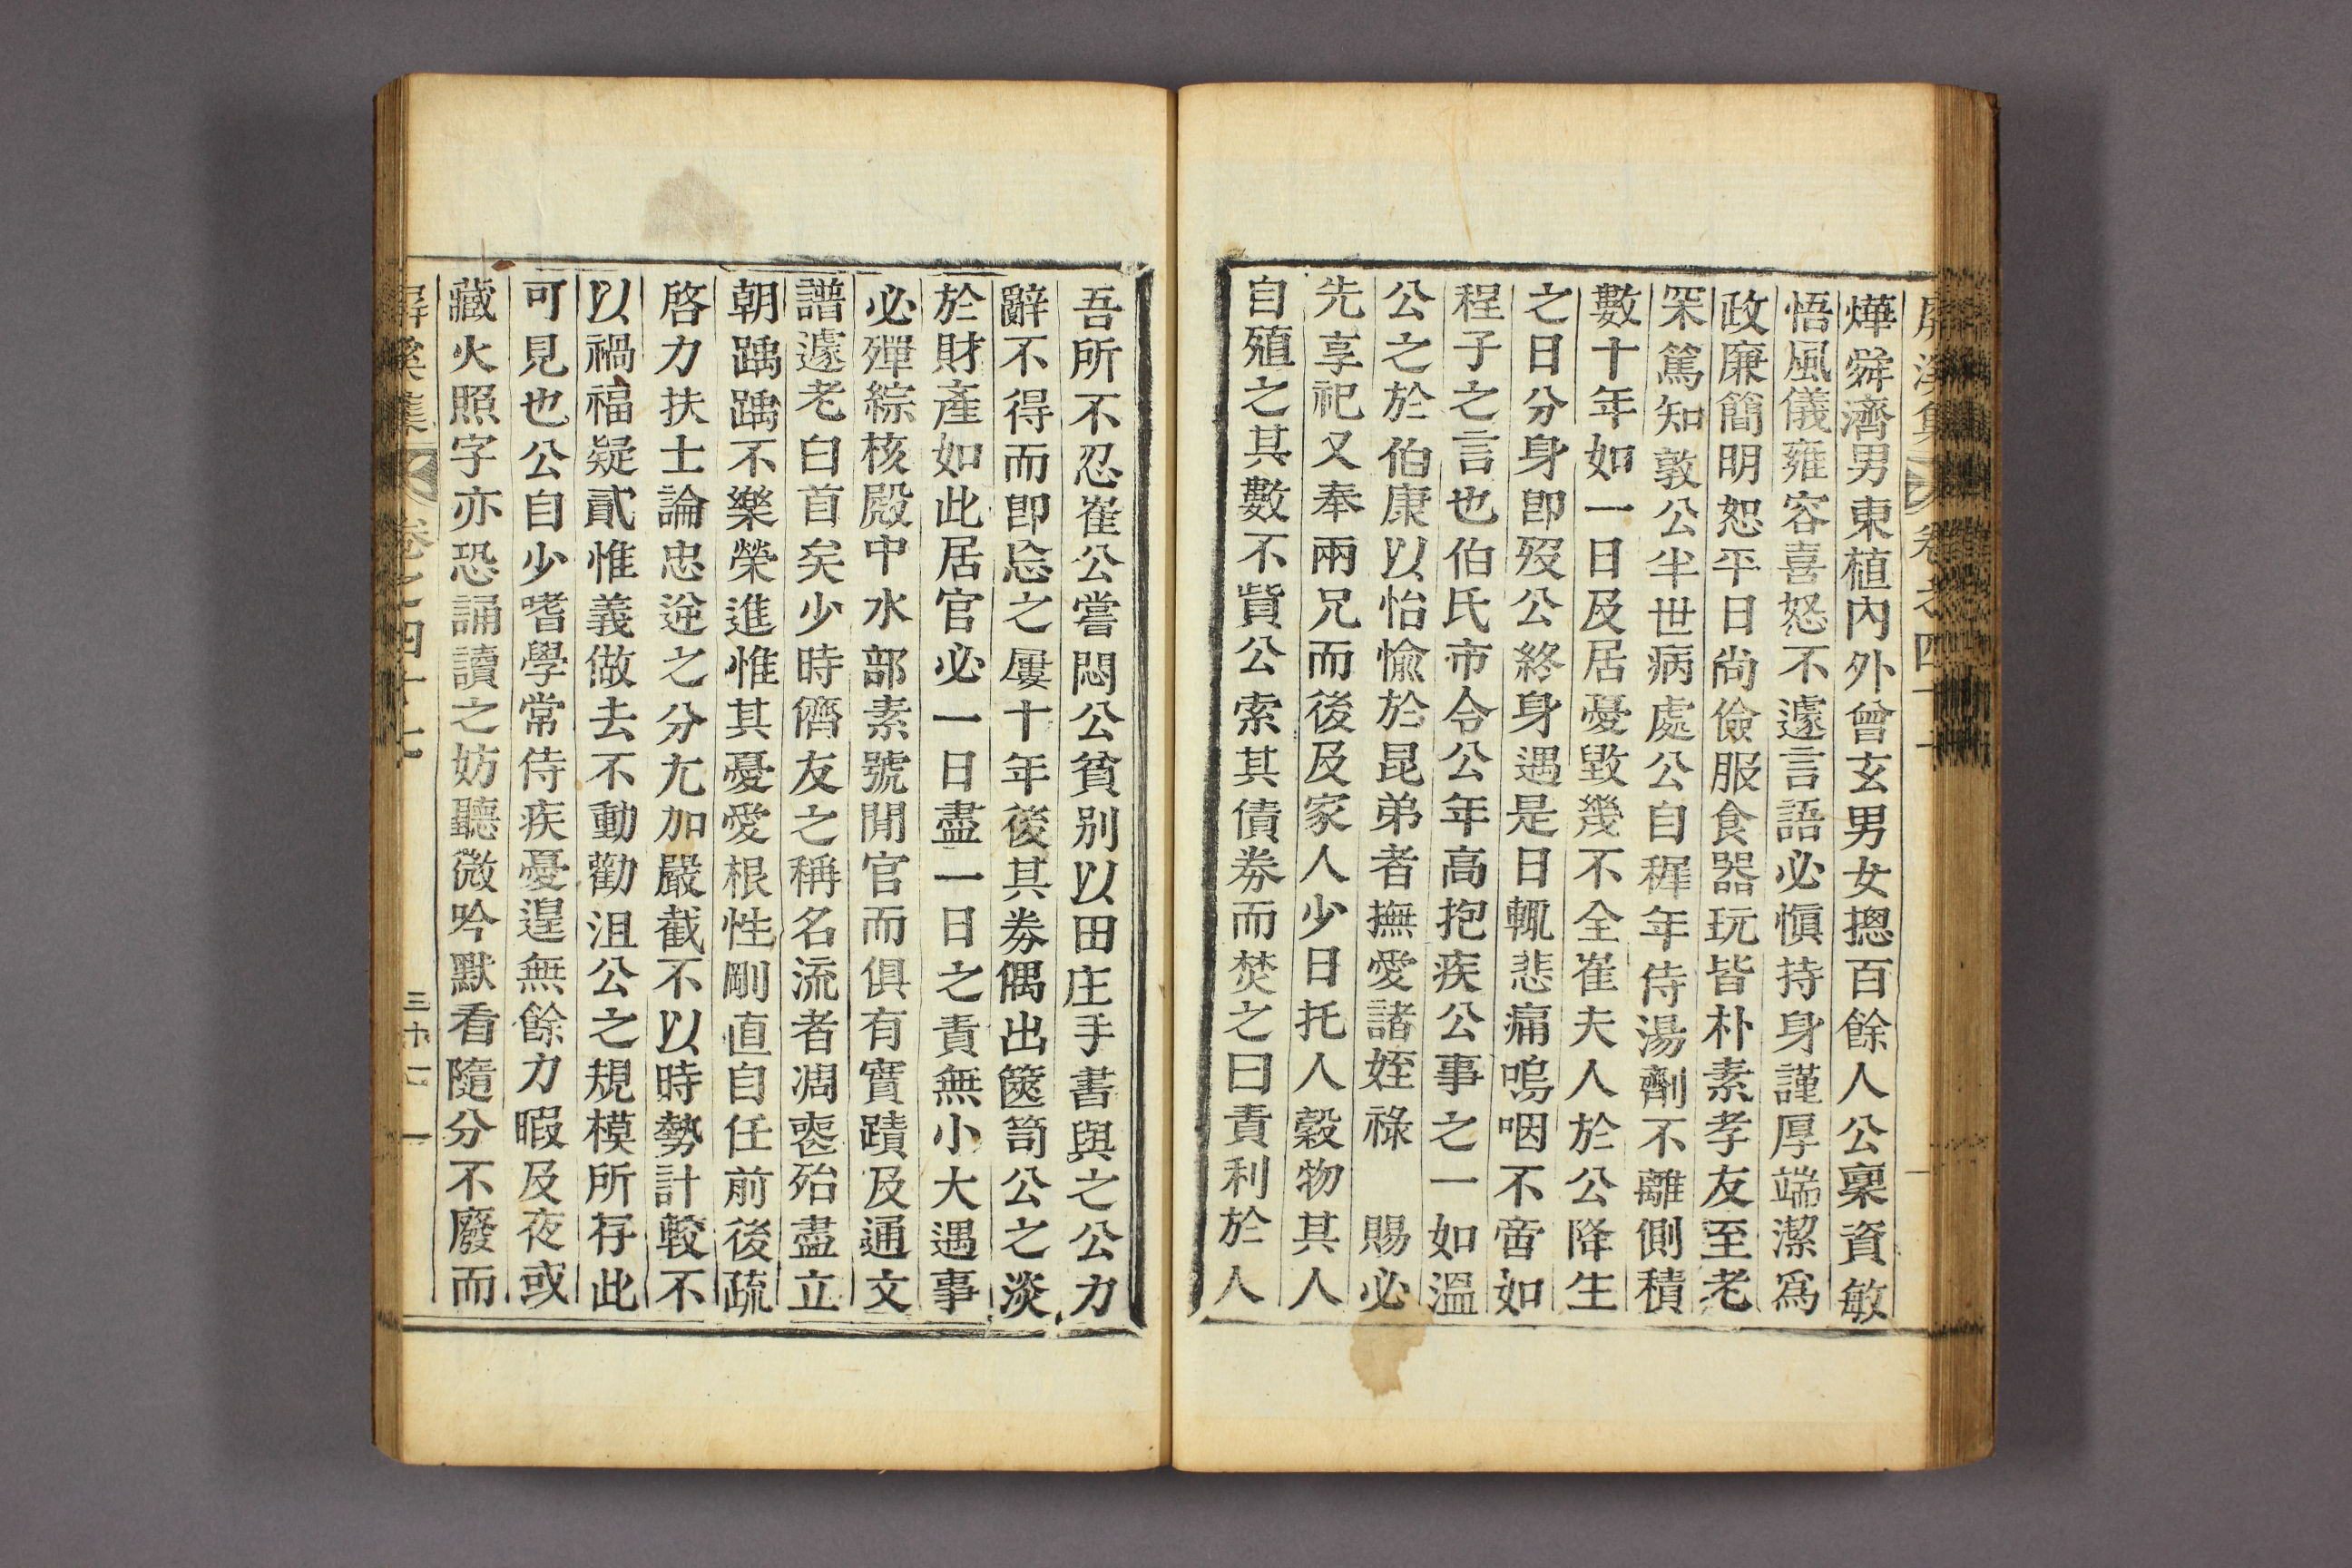 屛溪集 卷之四十
燁舜濟男東植內外曾玄男女摠百餘人公稟資敏
悟風儀雍容喜怒不遽言語必愼持身謹厚端潔爲
政廉簡明恕平日尙儉服食器玩皆朴素孝友至老
罙篤知敦公半世病處公自穉年侍湯劑不離側積
數十年如一日及居憂毁幾不全崔夫人於公降生
之日分身卽歿公終身遇是日輒悲痛嗚咽不啻如
程子之言也伯氏市令公年高抱疾公事之一如溫
公之於伯康以怡愉於昆弟者撫愛諸姪祿 賜必
先享祀又奉兩兄而後及家人少日托人穀物其人
自殖之其數不貲公索其債券而焚之曰責利於人
吾所不忍崔公嘗悶公貧別以田庄手書與之公力
辭不得而卽忘之屢十年後其券偶出篋笥公之淡
於財產如此居官必一日盡一日之責無小大遇事
必殫綜核殿中水部素號閒官而俱有實蹟及通文
譜遽老白首矣少時儕友之稱名流者凋喪殆盡立
朝踽踽不樂榮進惟其憂愛根性剛直自任前後疏
啓力扶士論忠逆之分尤加嚴截不以時勢計較不
以禍福疑貳惟義做去不動勸沮公之規模所存此
可見也公自少嗜學常侍疾憂遑無餘力暇及夜或
藏火照字亦恐誦讀之妨聽微吟默看隨分不廢而
屛溪集 卷之四十七